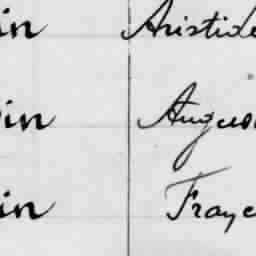 in Aristide
in Augus
in Franc